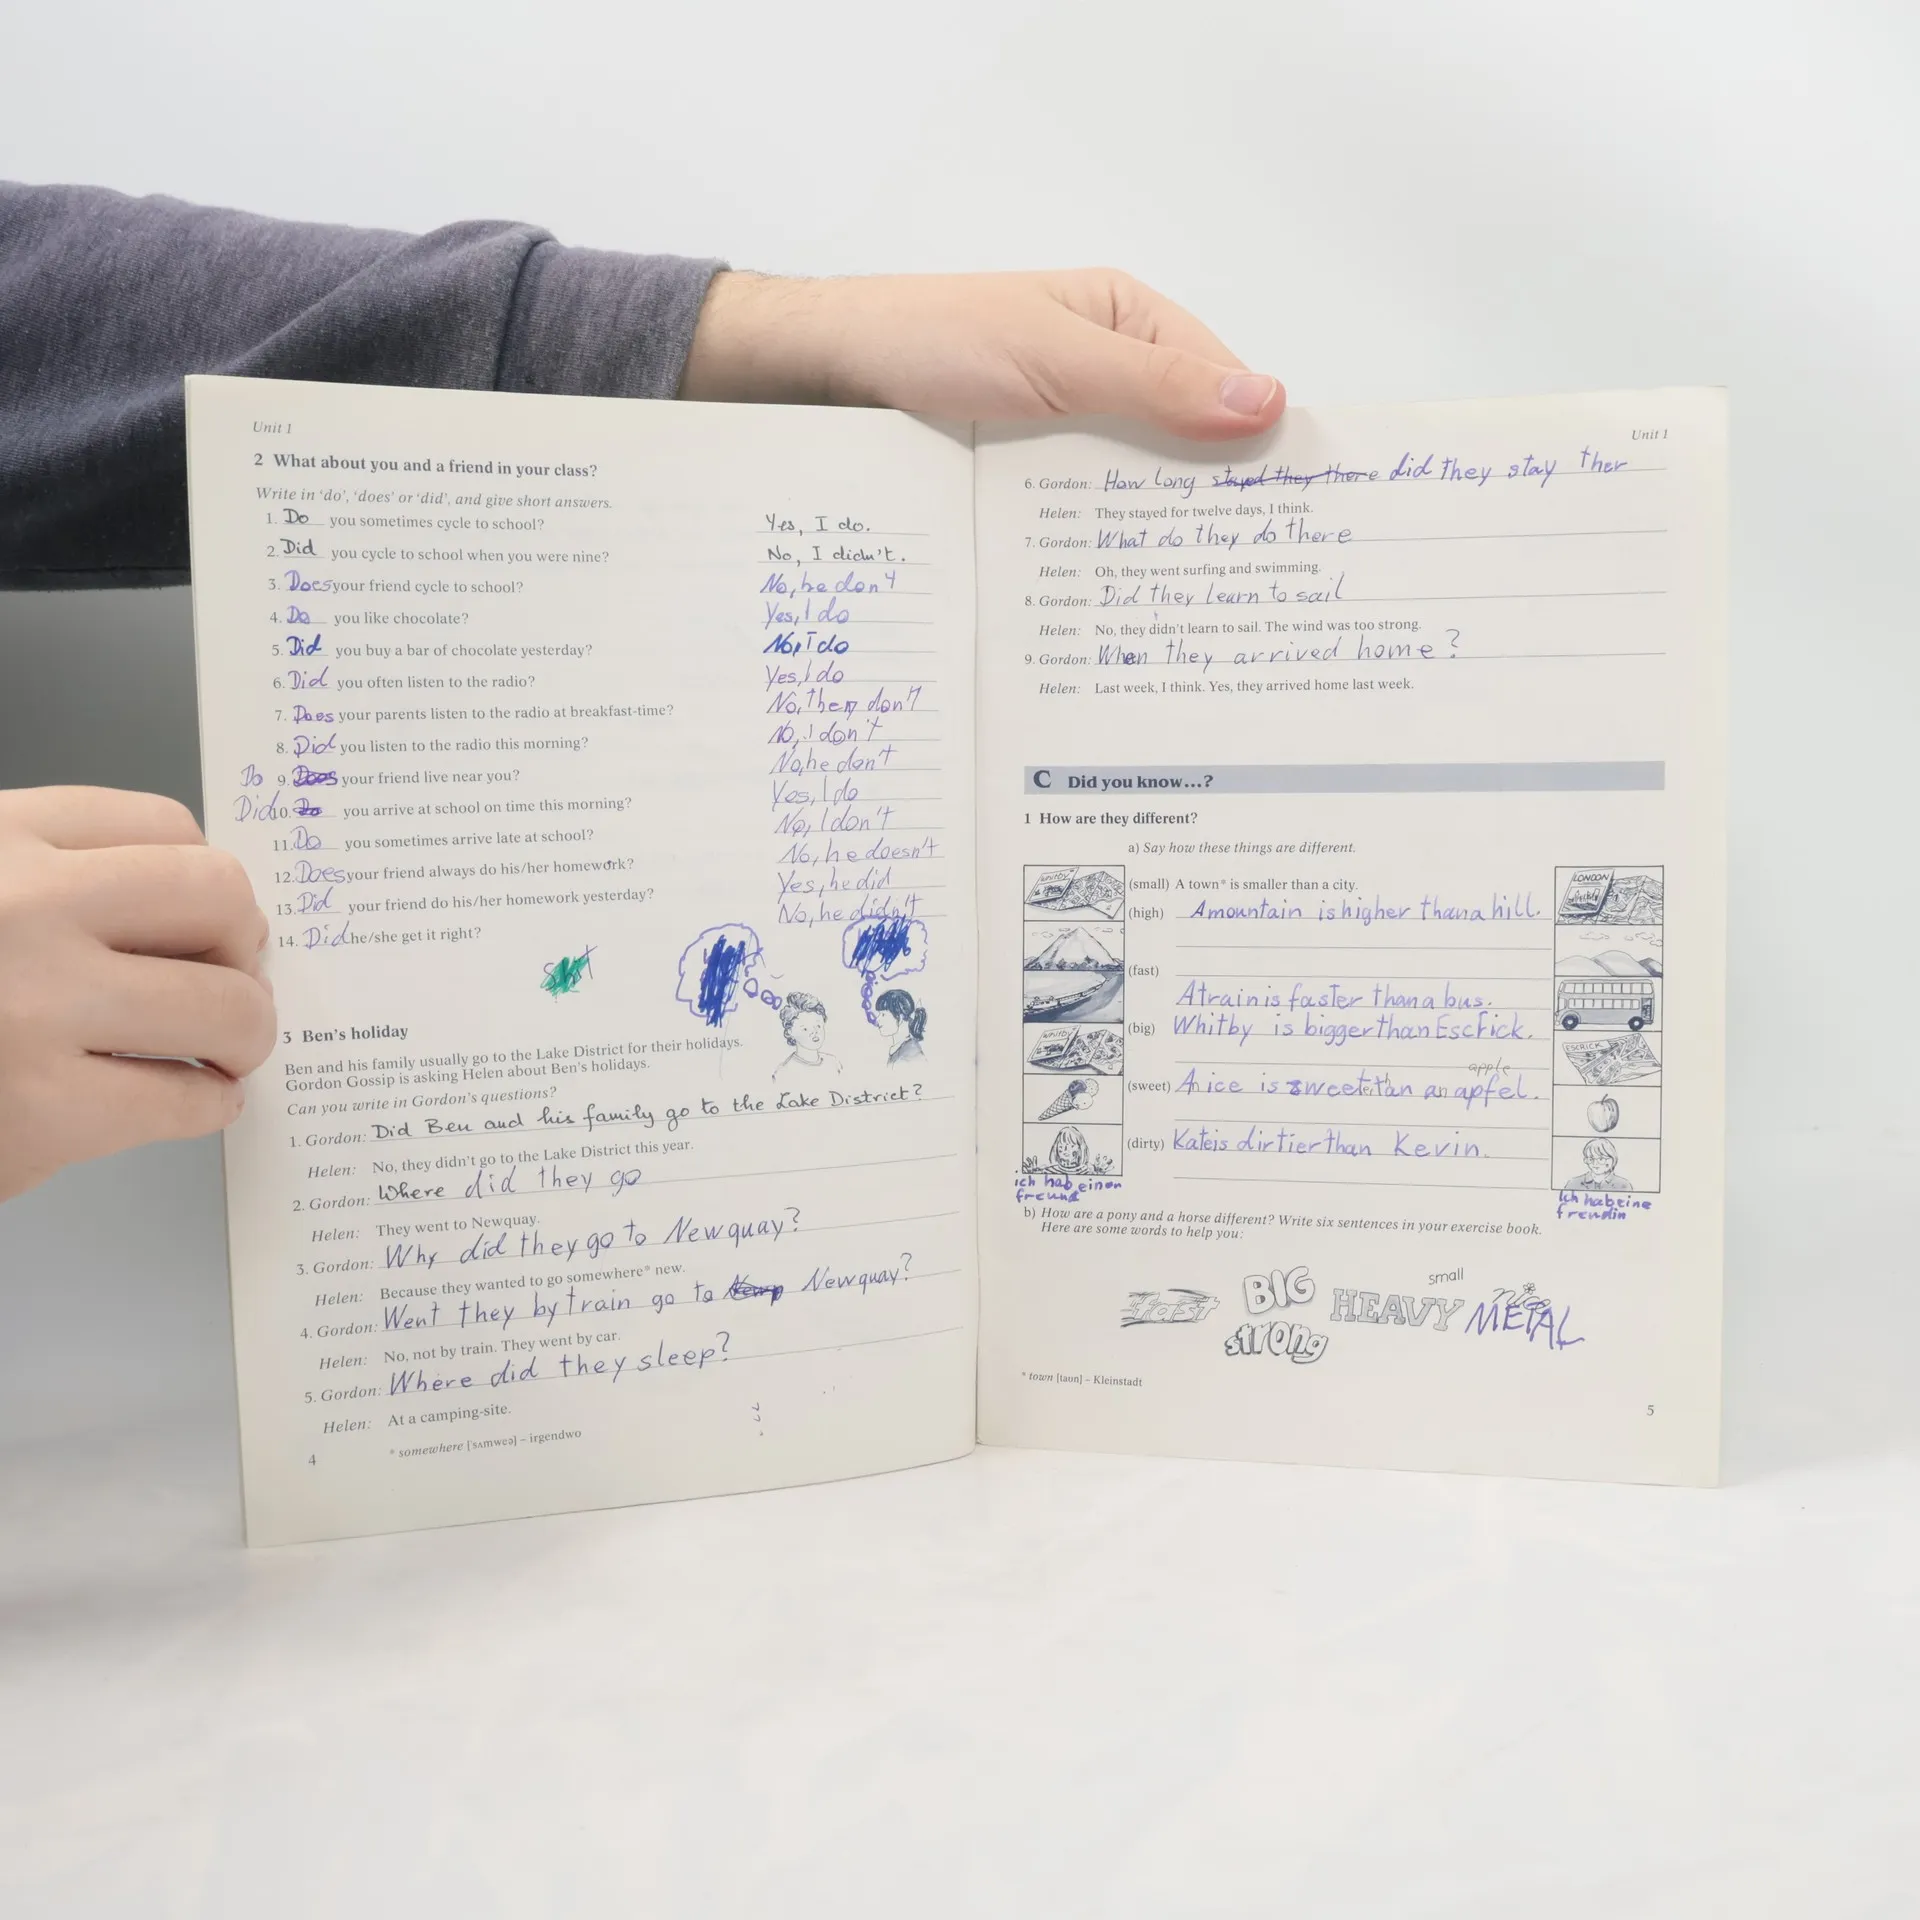 Unit 1
2 What about you and a friend in your class?
Write in 'do', 'does' or 'did', and give short answers.
1. Do you sometimes cycle to school? Yes, I do.
2. Did you cycle to school when you were nine? No, I didn't.
3. Does your friend cycle to school? No, he don't
4. Do you like chocolate? Yes, I do
5. Did you buy a bar of chocolate yesterday? No, I do
6. Did you often listen to the radio? Yes, I do
7. Does your parents listen to the radio at breakfast-time? No, they don't
8. Did you listen to the radio this morning? No, I don't
Do 9. Does your friend live near you? No, he don't
Did 10. Do you arrive at school on time this morning? Yes, I do
11. Do you sometimes arrive late at school? No, I don't
12. Does your friend always do his/her homework? No, he doesn't
13. Did your friend do his/her homework yesterday? Yes, he did
14. Did he/she get it right? No, he didn't
3 Ben's holiday
Ben and his family usually go to the Lake District for their holidays.
Gordon Gossip is asking Helen about Ben's holidays.
Can you write in Gordon's questions?
1. Gordon: Did Ben and his family go to the Lake District?
Helen: No, they didn't go to the Lake District this year.
2. Gordon: Where did they go
Helen: They went to Newquay.
3. Gordon: Why did they go to Newquay?
Helen: Because they wanted to go somewhere* new.
4. Gordon: Went they by train go to Newquay?
Helen: No, not by train. They went by car.
5. Gordon: Where did they sleep?
Helen: At a camping-site.
* somewhere ['sʌmweə] – irgendwo
4
Unit 1
6. Gordon: How long stayed they there did they stay ther
Helen: They stayed for twelve days, I think.
7. Gordon: What do they do there
Helen: Oh, they went surfing and swimming.
8. Gordon: Did they learn to sail
Helen: No, they didn't learn to sail. The wind was too strong.
9. Gordon: When they arrived home?
Helen: Last week, I think. Yes, they arrived home last week.
C Did you know...?
1 How are they different?
a) Say how these things are different.
WHITBY
LONDON
(small) A town* is smaller than a city.
(high) A mountain is higher than a hill.
(fast)
A train is faster than a bus.
(big) Whitby is bigger than Escrick.
WHITBY
ESCRICK
apple
(sweet) An ice is sweeter than an apfel.
(dirty) Kate is dirtier than Kevin.
ich hab einen
freund
Ich hab eine
freundin
b) How are a pony and a horse different? Write six sentences in your exercise book.
Here are some words to help you:
fast BIG small HEAVY nice METAL
strong
* town [taʊn] – Kleinstadt
5